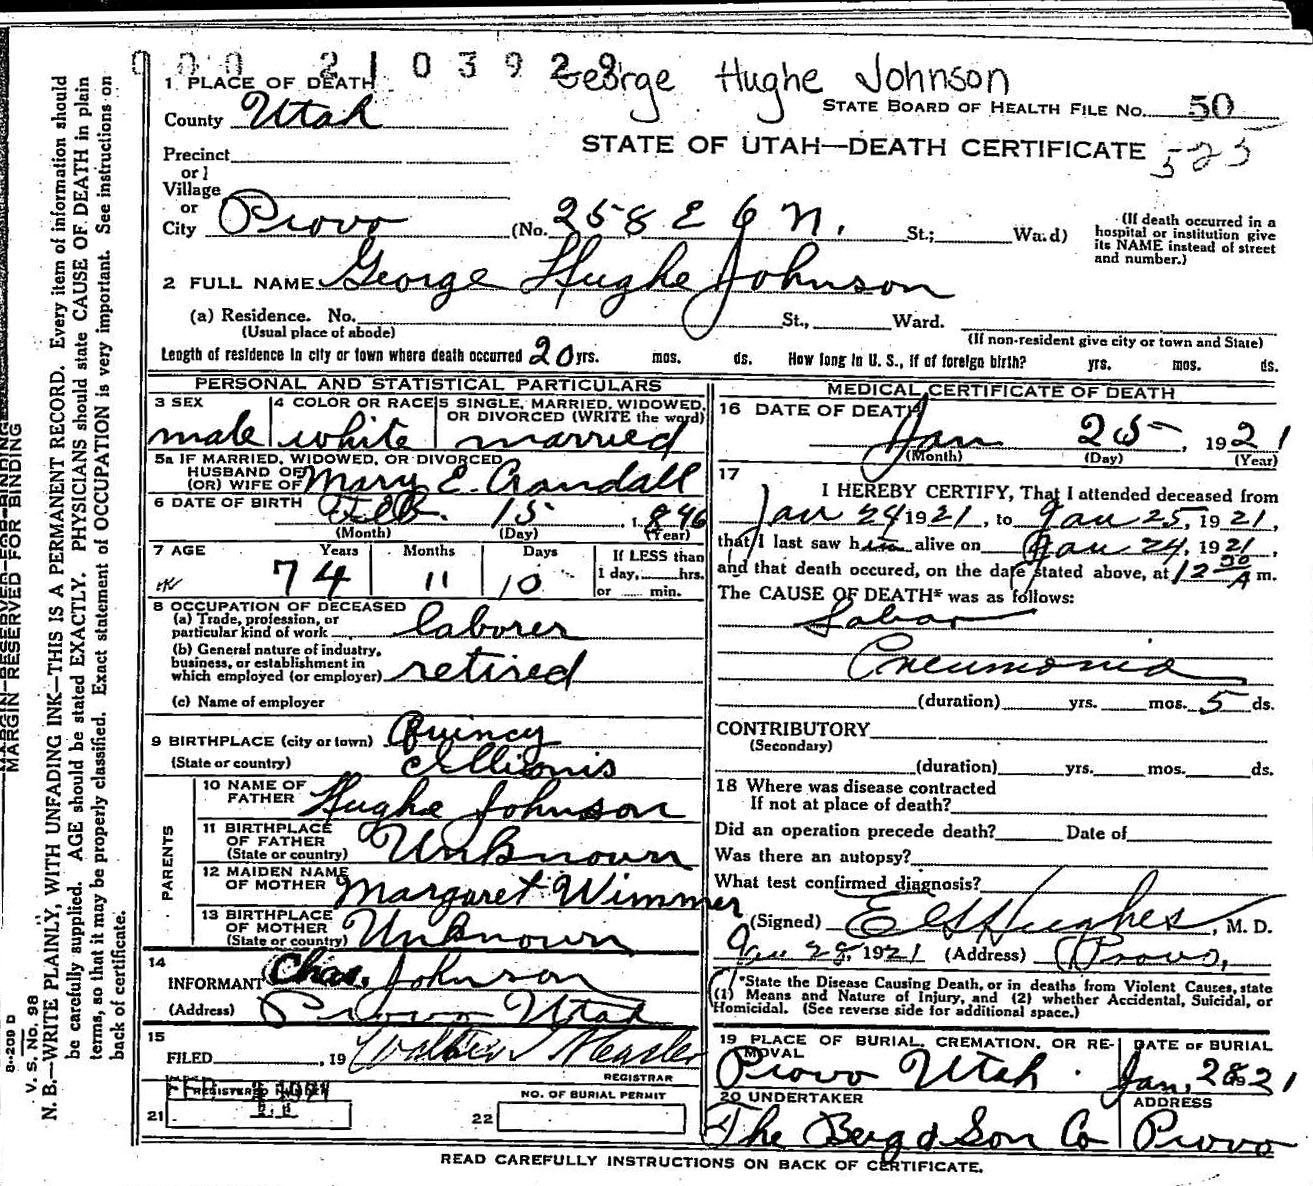 George Hughe Johnson
1 PLACE OF DEATH
STATE BOARD OF HEALTH FILE NO. 50
County Utah
STATE OF UTAH—DEATH CERTIFICATE 525
Precinct
or
Village
or
City Provo (No. 258 E 6 N. St.; Ward)
(If death occurred in a hospital or institution give its NAME instead of street and number.)
2 FULL NAME George Hughe Johnson
(a) Residence. No. St., Ward.
(Usual place of abode) (If non-resident give city or town and State)
Length of residence in city or town where death occurred 20 yrs. mos. ds. How long in U. S., if of foreign birth? yrs. mos. ds.
PERSONAL AND STATISTICAL PARTICULARS
3 SEX 4 COLOR OR RACE 5 SINGLE, MARRIED, WIDOWED, OR DIVORCED (WRITE the word)
male white married
5a IF MARRIED, WIDOWED, OR DIVORCED
HUSBAND OF
(OR) WIFE OF Mary E. Crandall
6 DATE OF BIRTH Feb. 15 1846
(Month) (Day) (Year)
7 AGE Years Months Days If LESS than
74 11 10 1 day, hrs.
or min.
8 OCCUPATION OF DECEASED
(a) Trade, profession, or
particular kind of work laborer
(b) General nature of industry,
business, or establishment in
which employed (or employer) retired
(c) Name of employer
9 BIRTHPLACE (city or town) Quincy
(State or country) Illionis
PARENTS
10 NAME OF
FATHER Hughe Johnson
11 BIRTHPLACE
OF FATHER
(State or country) Unknown
12 MAIDEN NAME
OF MOTHER Margaret Wimmer
13 BIRTHPLACE
OF MOTHER
(State or country) Unknown
14
INFORMANT Chas. Johnson
(Address) Provo Utah
15
FILED , 19
REGISTRAR
NO. OF BURIAL PERMIT
21 22
MEDICAL CERTIFICATE OF DEATH
16 DATE OF DEATH
Jan 25, 1921
(Month) (Day) (Year)
17
I HEREBY CERTIFY, That I attended deceased from
Jan 24 1921, to Jan 25, 1921,
that I last saw him alive on Jan 24, 1921,
and that death occured, on the date stated above, at 12 30 A m.
The CAUSE OF DEATH* was as follows:
Lobar
Pneumonia
(duration) yrs. mos. 5 ds.
CONTRIBUTORY
(Secondary)
(duration) yrs. mos. ds.
18 Where was disease contracted
If not at place of death?
Did an operation precede death? Date of
Was there an autopsy?
What test confirmed diagnosis?
(Signed) Hughes, M. D.
Jan 28, 1921 (Address) Provo,
*State the Disease Causing Death, or in deaths from Violent Causes, state
(1) Means and Nature of Injury, and (2) whether Accidental, Suicidal, or
Homicidal. (See reverse side for additional space.)
19 PLACE OF BURIAL, CREMATION, OR RE- DATE OF BURIAL
MOVAL
Provo Utah. Jan. 28 1921
20 UNDERTAKER ADDRESS
The Berg & Son Co Provo
READ CAREFULLY INSTRUCTIONS ON BACK OF CERTIFICATE.
MARGIN RESERVED FOR BINDING
V. S. No. 98
N. B.—WRITE PLAINLY, WITH UNFADING INK—THIS IS A PERMANENT RECORD. Every item of information should
be carefully supplied. AGE should be stated EXACTLY. PHYSICIANS should state CAUSE OF DEATH in plain
terms, so that it may be properly classified. Exact statement of OCCUPATION is very important. See instructions on
back of certificate.